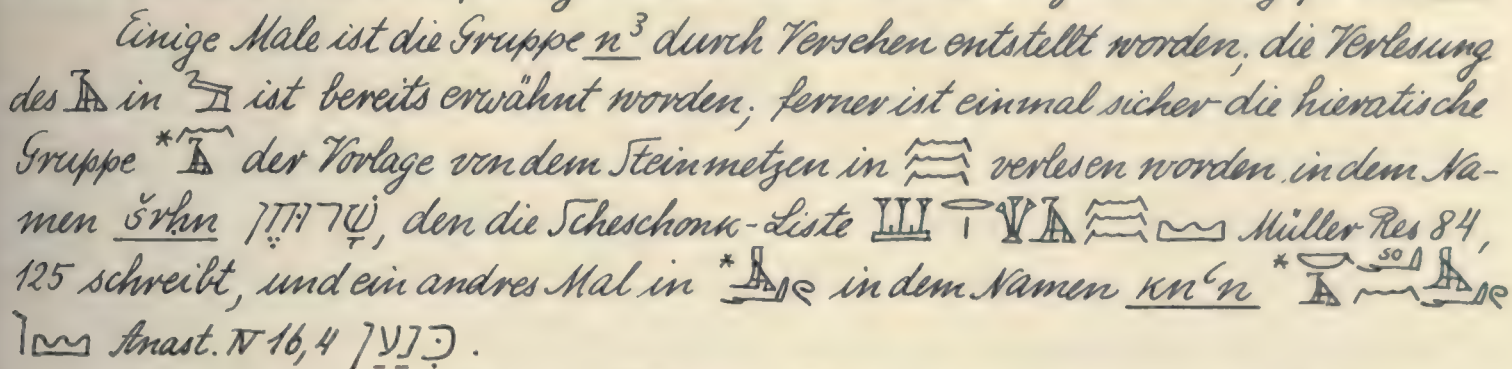 Einige Male ist die Gruppe n³ durch Versehen entstellt worden; die Verlesung
des in ist bereits erwähnt worden; ferner ist einmal sicher die hieratische
Gruppe * der Vorlage von dem Steinmetzen in verlesen worden in dem Na-
men šrḥn שָׁרוּחֶן, den die Scheschonk-Liste Müller Res 84,
125 schreibt, und ein andres Mal in * in dem Namen knʿn *
Anast. IV 16,4 כְּנַעַן.